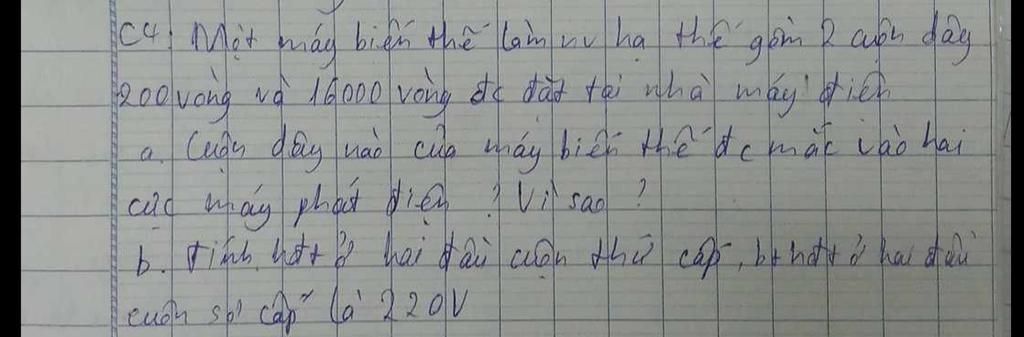 C4) Một máy biến thế làm nv hạ thế gồm 2 cuộn dây
200 vòng và 16000 vòng đc đặt tại nhà máy điện
a. Cuộn dây nào của máy biến thế đc mắc vào hai
cực máy phát điện ? Vì sao ?
b. Tính hđt ở hai đầu cuộn thứ cấp, bt hđt ở hai đầu
cuộn sơ cấp là 220V